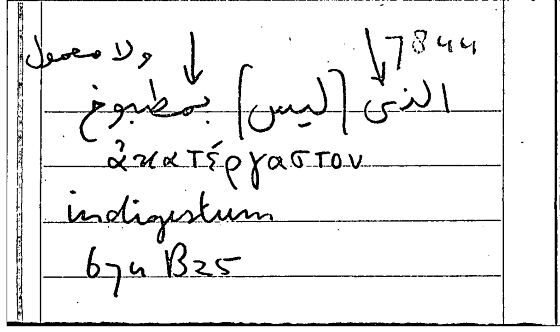 7844
ولا معمول
الذى [ليس] بمطبوخ
ἀκατέργαστον
indigestum
674 B25